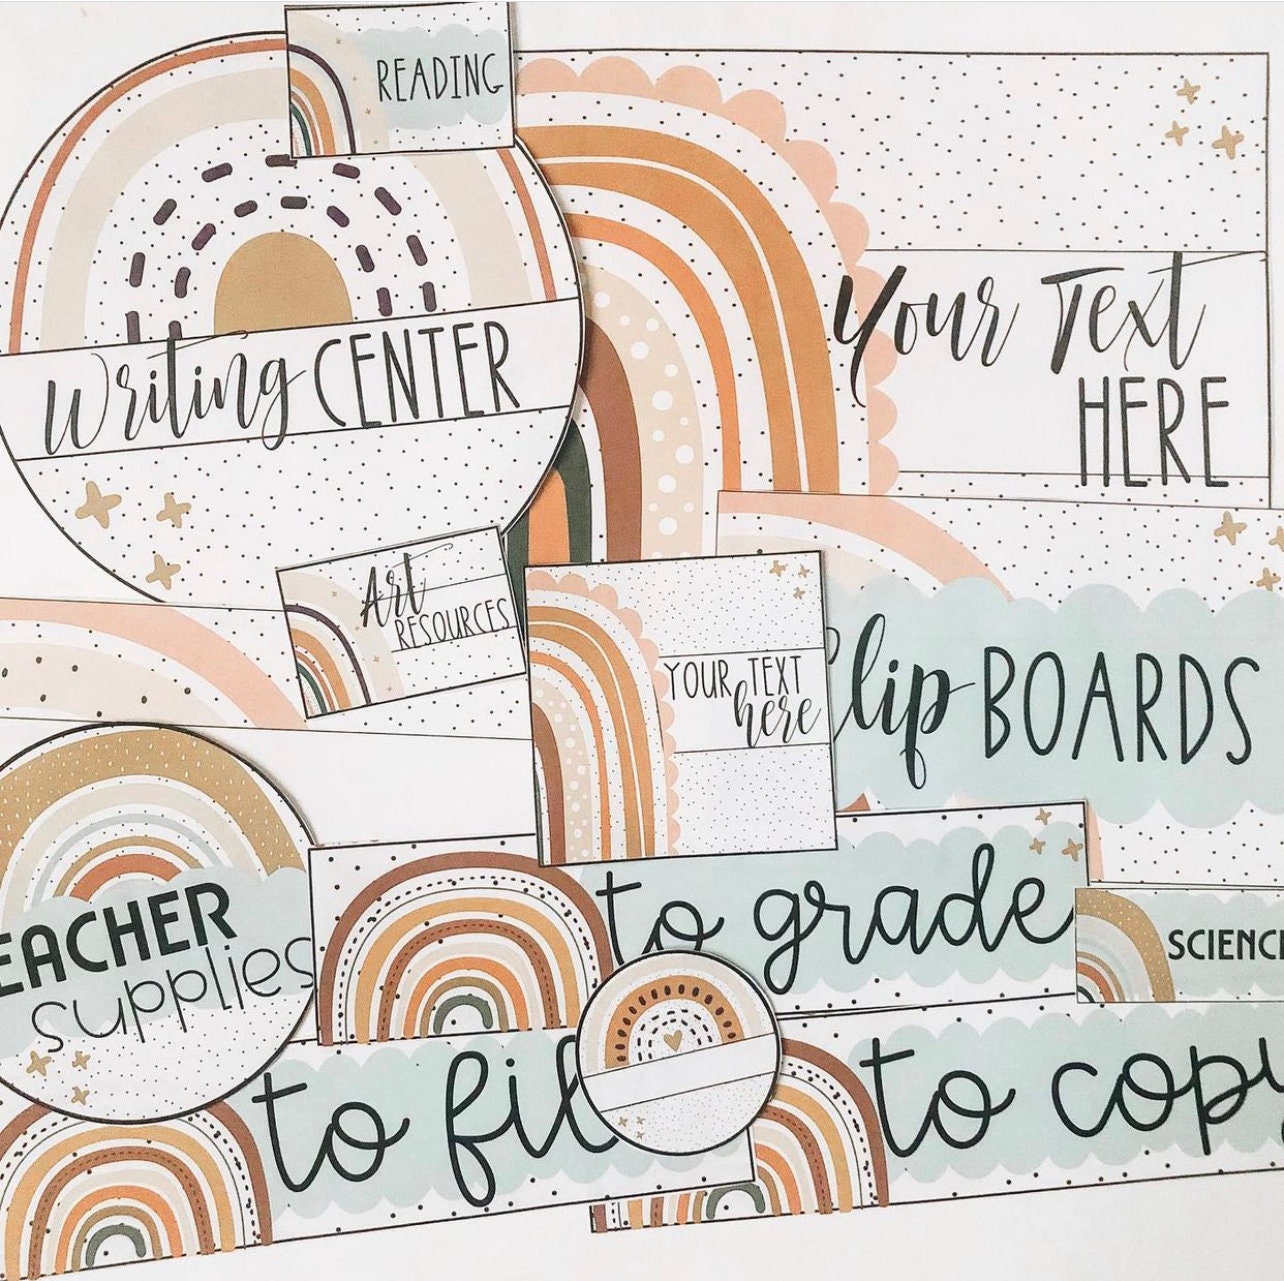 READING
Your Text
HERE
Writing CENTER
Art
RESOURCES
YOUR TEXT
here
lip BOARDS
EACHER
supplies
to grade
SCIENC
to fil
to copy